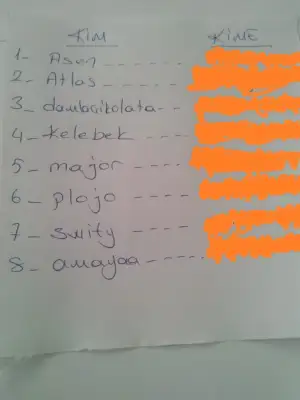 KİM KİME
1- Asun -----
2- Atlas -----
3- damlacikolata--
4- kelebek ---
5- major ----
6- plojo ----
7- swity ----
8- amayaa ----